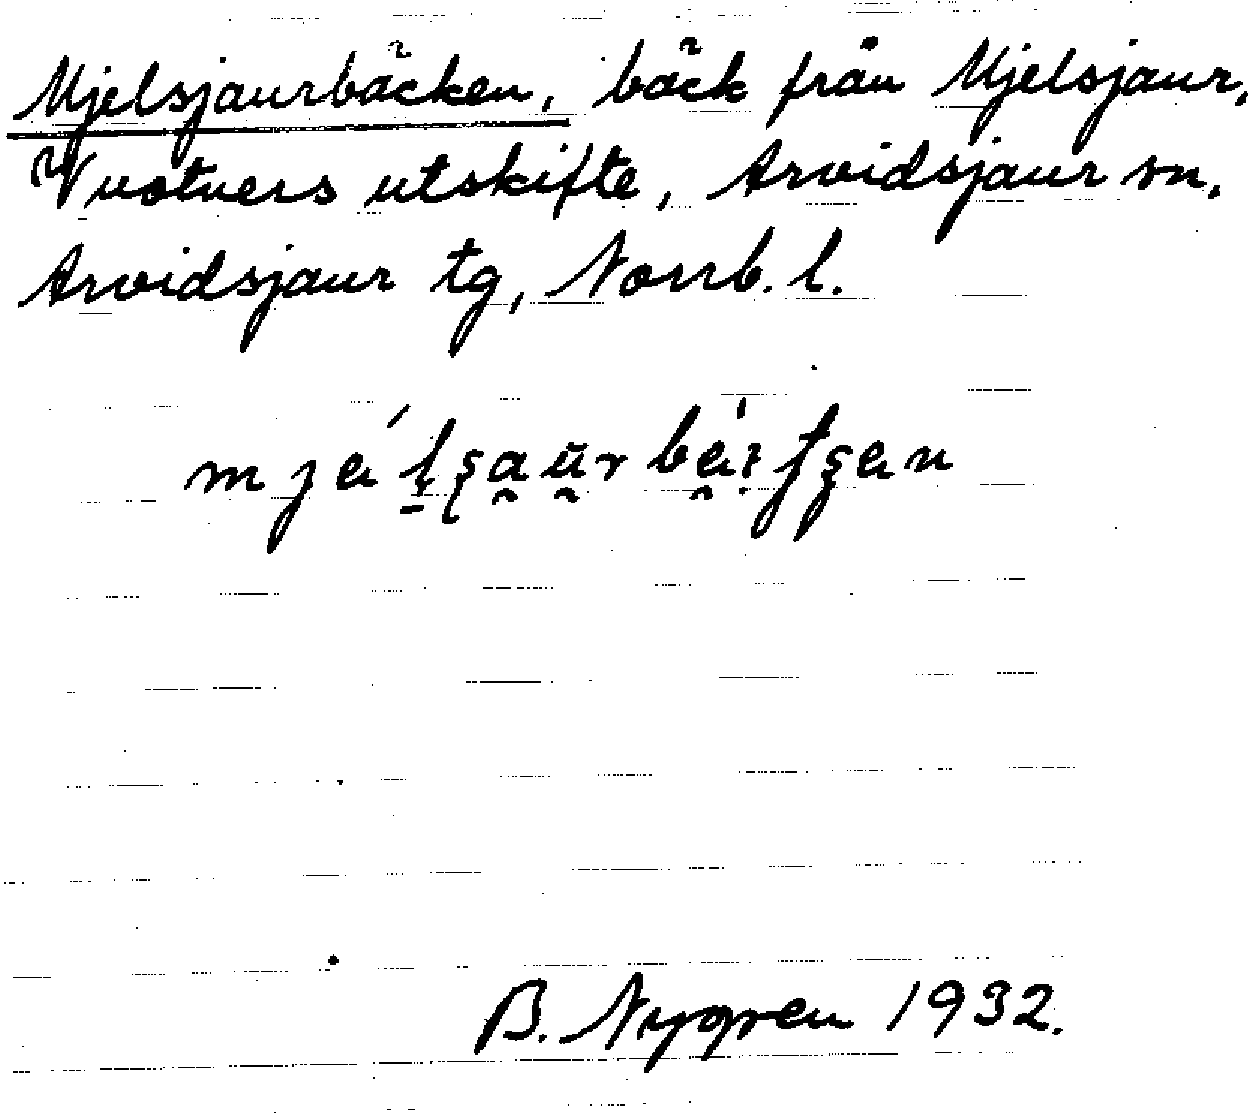 Mjelsjaurbäcken, bäck från Mjelsjaur,
Vuotners utskifte, Arvidsjaur sn.
Arvidsjaur tg, Norrb. l.
B. Nygren 1932.